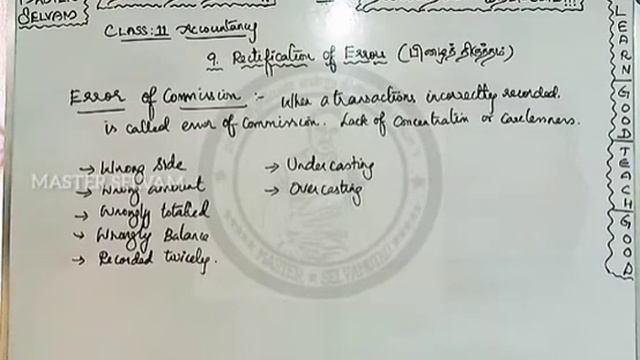 SELVAM
CLASS: 11 Accountancy
9. Rectification of Errors (பிழைத் திருத்தம்)
Error of Commission :- When a transactions incorrectly recorded.
is called error of Commission. Lack of Concentration or Carelessness.
→ Wrong Side
→ Wrong amount
→ Wrongly totalled
→ Wrongly Balance
→ Recorded twicely.
→ Under casting
→ Over casting
MASTER SELVAM
LEARN GOOD TEACH GOOD